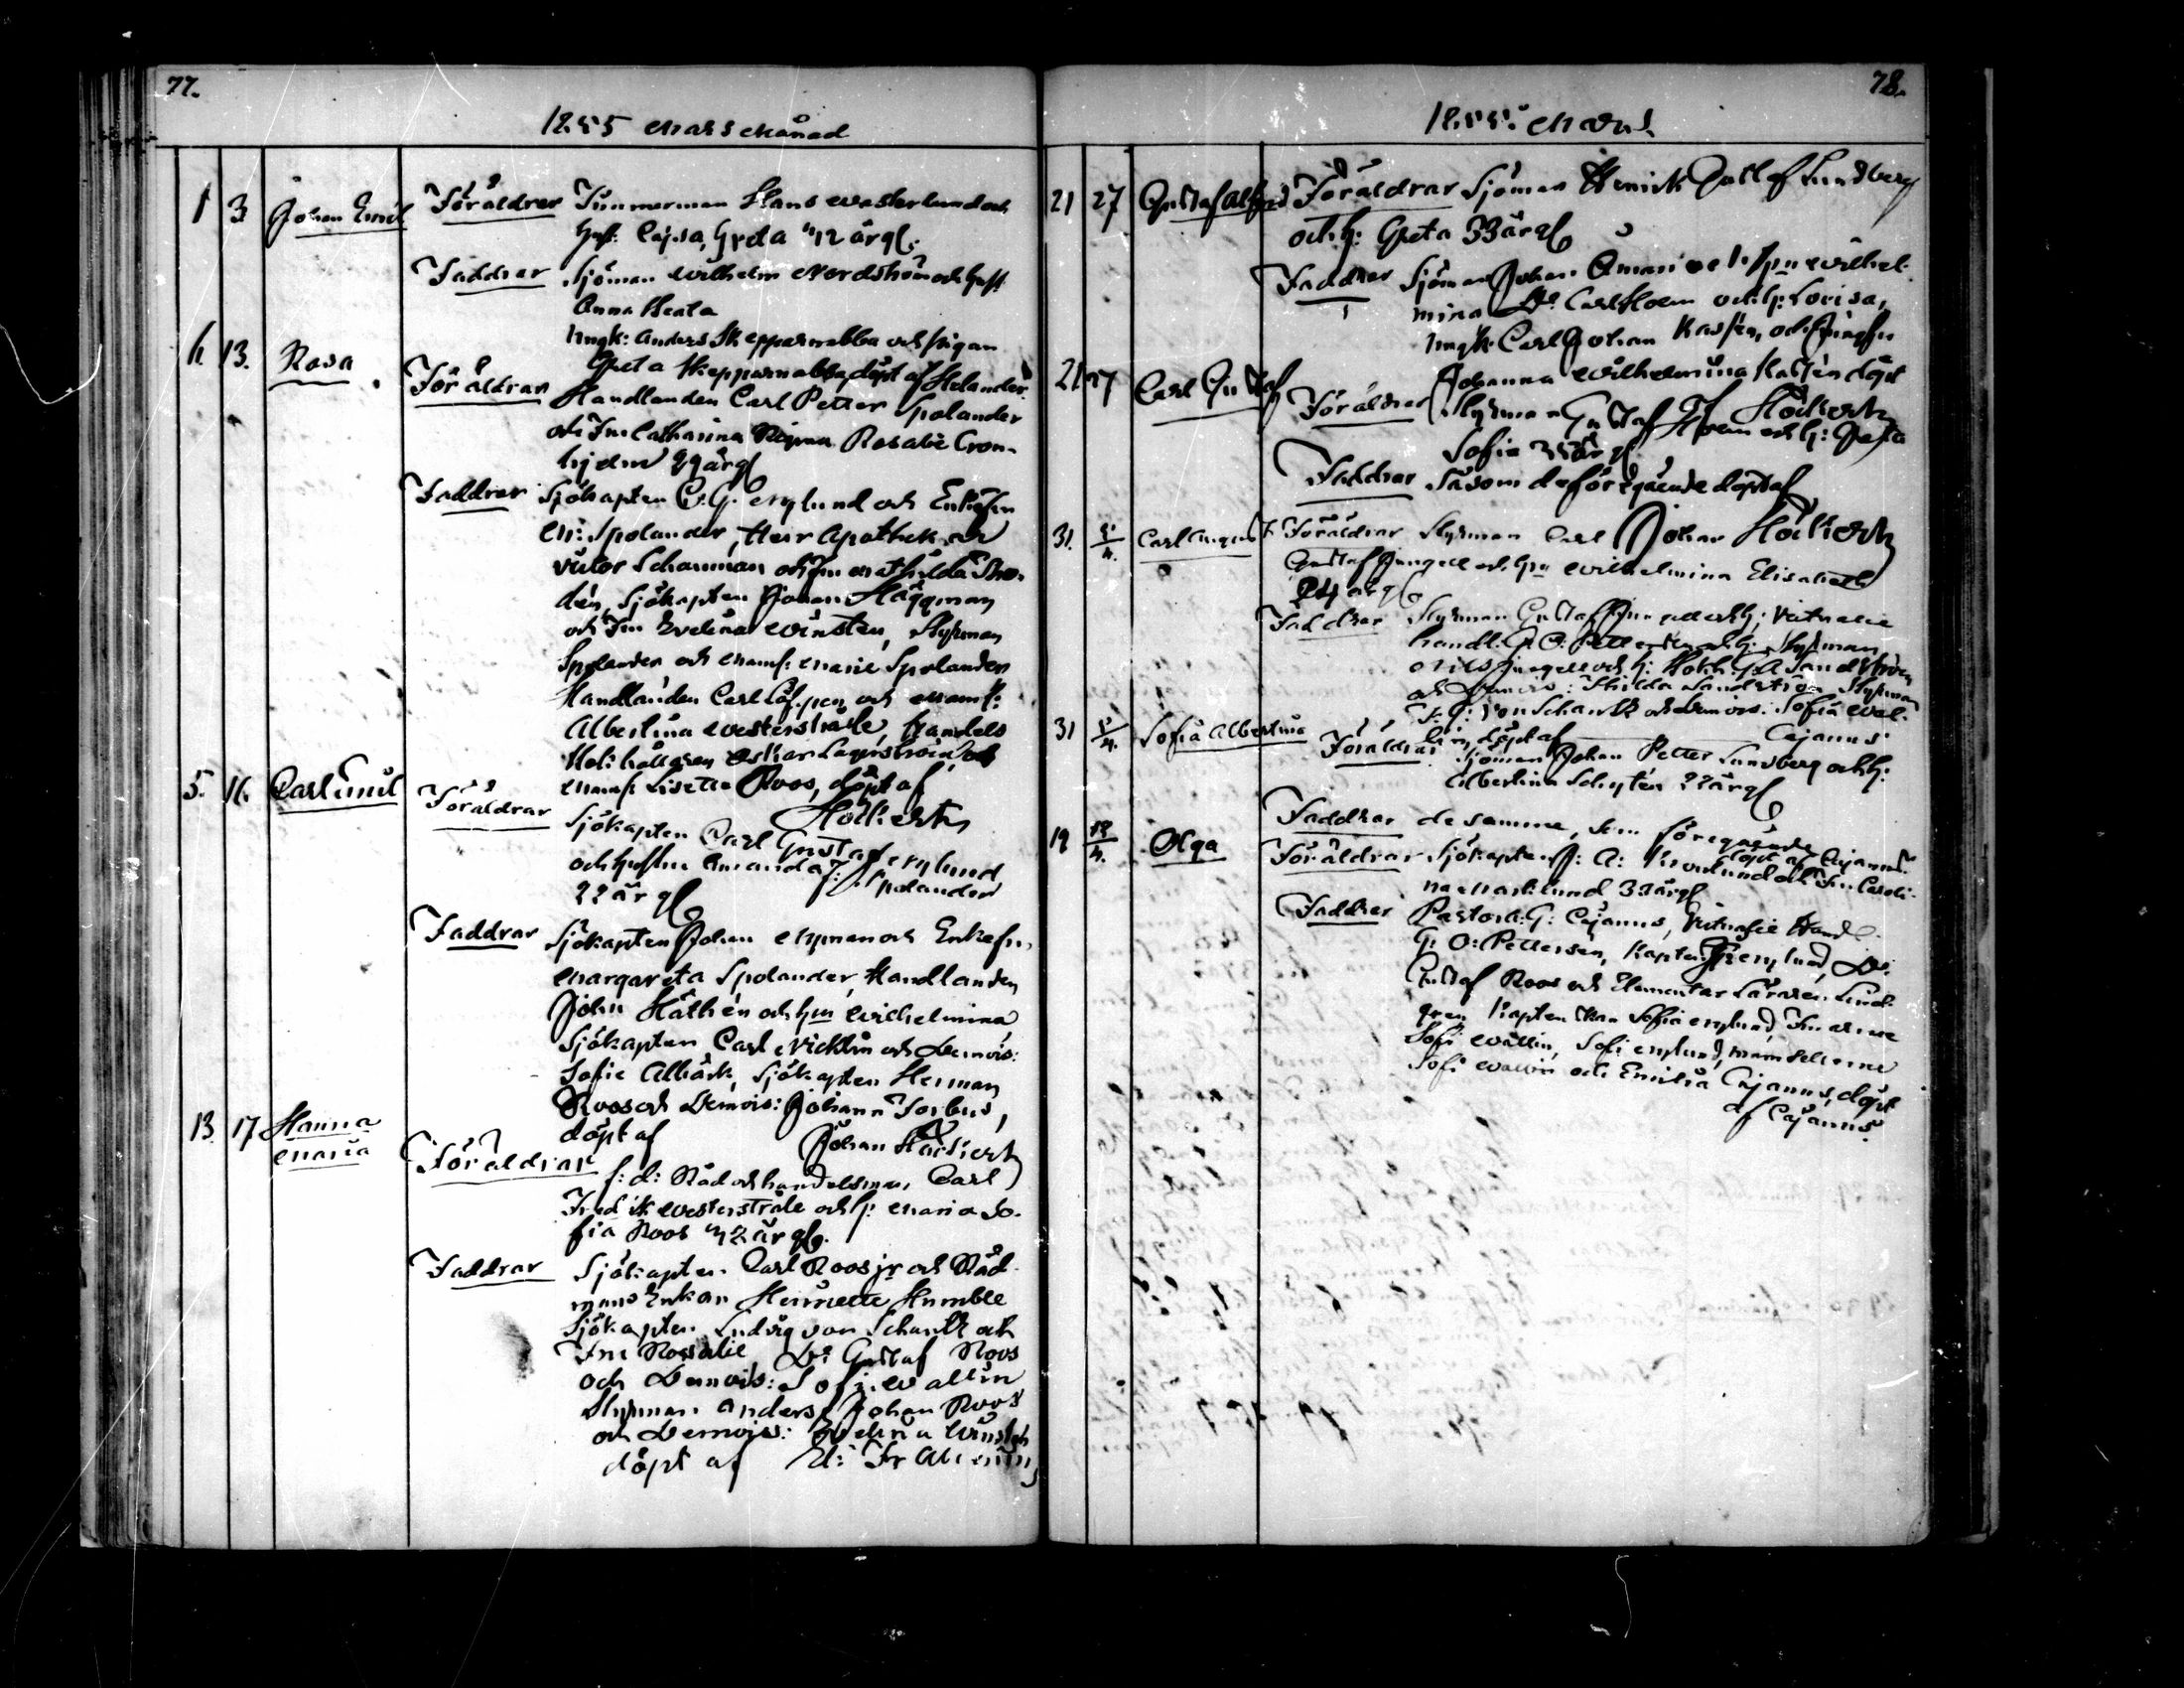 77.
1855 Mars Månad
1 3 Johan Emil Föräldrar Timmerman Hans Westerlund och
hust: Cajsa Greta 42 år gl.
Faddrar Sjöman Wilhelm Nordström och hust
Anna Beata
Ungk: Anders Skepparnabba och pigan
Greta Skepparnabba, döpt af Helander
6. 13. Rosa Föräldrar Handlanden Carl Petter Spolander
och Fru Catharina Regina Rosalie Cron-
hjelm 29 år gl
Faddrar Sjökapten C. G. Mylund och Enkefru
M: Spolander, Herr Apothekaren
Victor Schauman och Fru Mathilda
dén, Sjökapten Johan Häggman
och Fru Evelina Winstén, Styrman
Spolander och Mamsl: Marie Spolander
Handlanden Carl och Mamsl:
Albertina Westerstråle, Handels
Bokhållaren Oskar Lagerström och
Mamsl Lisette Roos, döpt af
Höckert
5. 16. Carl Emil Föräldrar Sjökapten Carl Gustaf Mylund
och hustru Amanda f: Spolander
22 år gl
Faddrar Sjökapten Johan Nyman och Enkefru
Margareta Spolander, Handlanden
John Häthén och hru Wilhelmina
Sjökapten Carl Nicklin och Demois:
Sofie Albäck, Sjökapten Herman
Roos och Demois: Johanna Forbus,
döpt af Johan Höckert
13. 17 Hanna
Maria Föräldrar f: d: Råd och handelsman Carl
Fredrik Westerstråle och h: Maria So-
fia Roos 42 år gl.
Faddrar Sjökapten Carl Roos jr och Råd
mans Enkan Henriette Humble
Sjökapten Ludvig von Schantz och
Fru Rosalie, Do: Gustaf Roos
och Demois: Sofi Wallin
Styrman Anders Johan Roos
och Demois: Evelina Winstén
döpt af Ed: Fr Alcenius
78.
1855. Mars
21 27 Gustaf Alfred Föräldrar Sjöman Henrik Gustaf Lundberg
och h: Greta 33 år gl
Faddrar Sjöman Johan Öman och hru Wilhel-
mina Do: Carl Hoem och h: Lovisa,
Ungk: Carl Johan Kastén, och Jungfru
Johanna Wilhelmina Kastén döpt
af Höckert
21 27 Carl Gustaf Föräldrar Styrman Gustaf Hoem och h: Greta
Sofia 35 år gl
Faddrar Såsom de föregående döpt af
Johan Höckert
31. 5/4. Carl August Föräldrar Styrman Carl
Gustaf Jungell och hru Wilhelmina Elisabeth
24 år gl
Faddrar Styrman Gustaf Jungell och h; Victualie
handl: G. O. Pettersén och h: Styrman
Nils Jungell och h: Bokh: G: A Sandström
och Demois: Hilda Sandström Styrman
F. G: von Schantz och Demois: Sofia Wal-
lin, döpt af Cajanus
31 5/4. Sofia Albertina Föräldrar Sjöman Johan Petter Lundberg och h:
Albertina 22 år gl
Faddrar de samme, som föregående
döpt af Cajanus
19 13/4. Olga Föräldrar Sjökapten J: A: och Fru Caroli-
na Marklund 33 år gl
Faddrar Pastor A: G: Cajanus, Victualie Handl.
G: O: Pettersén, Kapten Mylund, Do:
Gustaf Roos och Elementar Läraren Lind-
gren Kaptenskan Sofia Mylund, Fruarne
Sofi Wallin, Sofi Mylund, Mamsellerne
Sofi Wallin och Emilia Cajanus, döpt
af Cajanus.